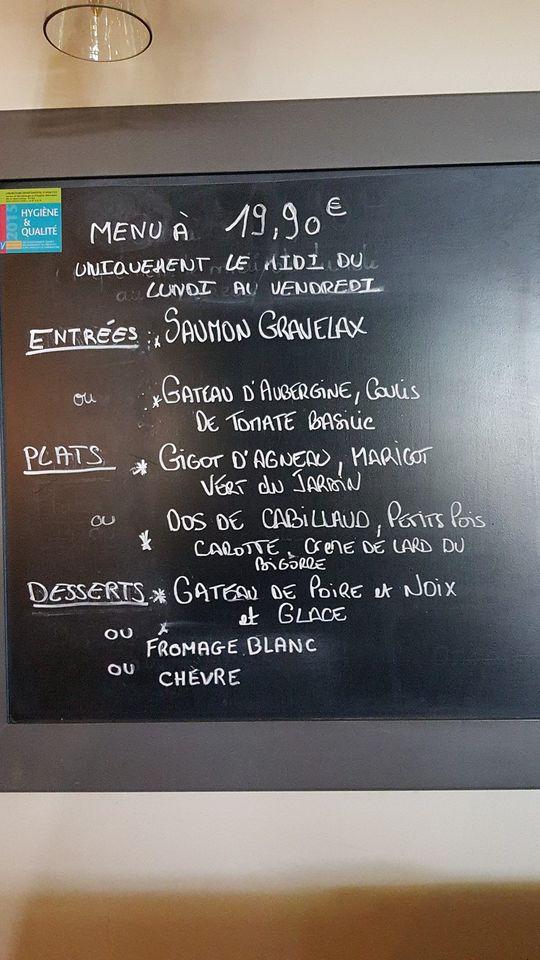 2015
HYGIÈNE
&
QUALITÉ
MENU À 19,90€
UNIQUEMENT LE MIDI DU
LUNDI AU VENDREDI
ENTRÉES : * SAUMON GRAVELAX
ou * GATEAU D'AUBERGINE, COULIS
DE TOMATE BASILIC
PLATS * GIGOT D'AGNEAU, HARICOT
VERT DU JARDIN
ou * DOS DE CABILLAUD, PETITS POIS
CAROTTE, CREME DE LARD DU
BIGORRE
DESSERTS * GATEAU DE POIRE et NOIX
et GLACE
OU * FROMAGE BLANC
OU CHÈVRE